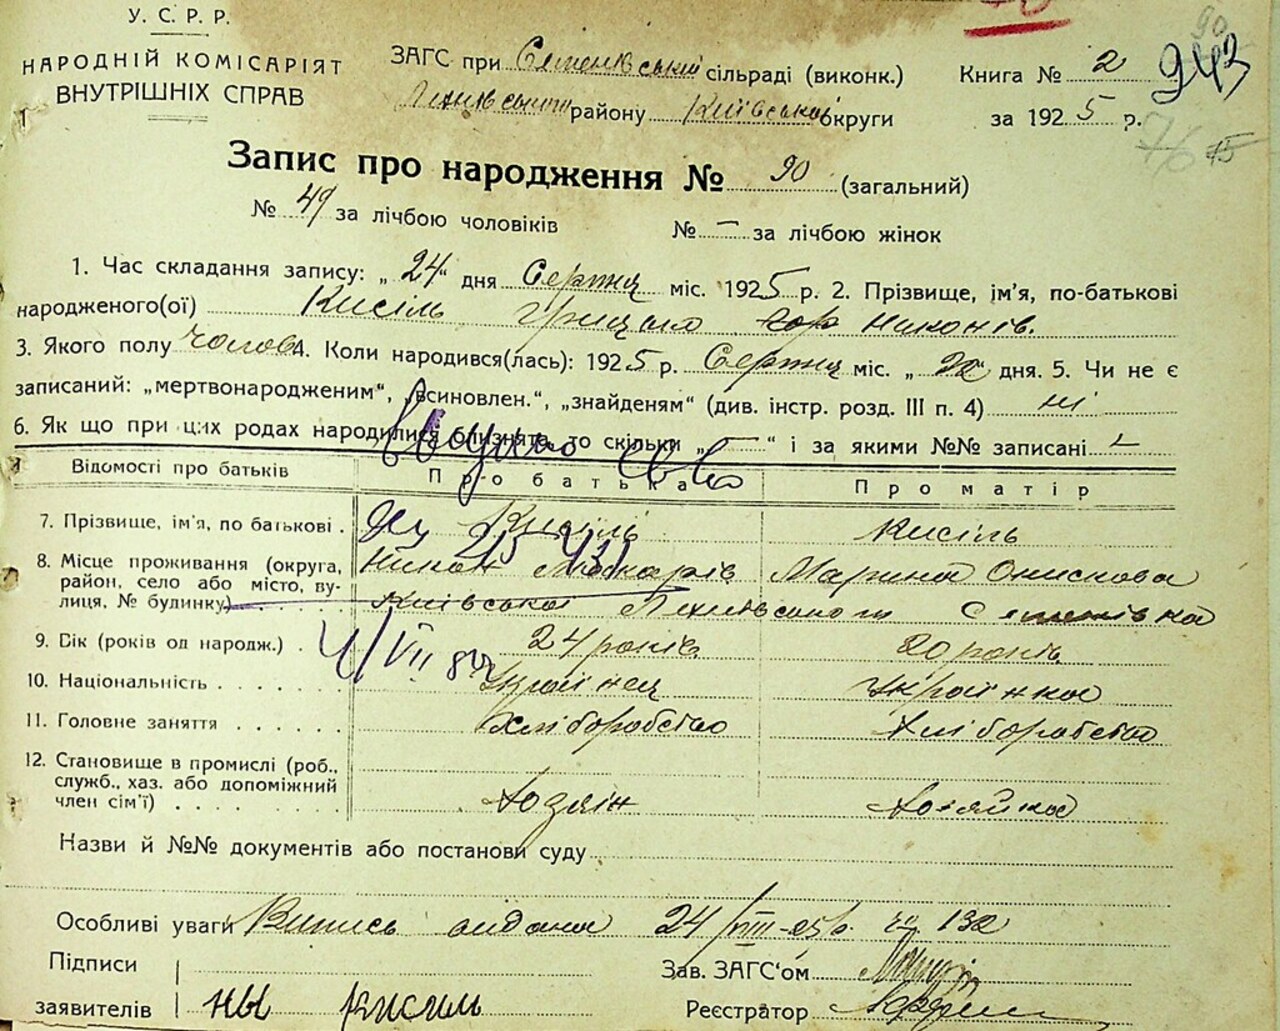 У. С. Р. Р.
НАРОДНІЙ КОМІСАРІЯТ
ВНУТРІШНІХ СПРАВ
ЗАГС при Семенівській сільраді (виконк.)
району Київської округи
Книга № 2
за 1925 р.
90
943
76 15
Запис про народження № 90 (загальний)
№ 49 за лічбою чоловіків № – за лічбою жінок
1. Час складання запису: „24“ дня Серпня міс. 1925 р. 2. Прізвище, ім'я, по-батькові
народженого(ої) Кисіль Грицько Никонів.
3. Якого полу чолов. 4. Коли народився(лась): 1925 р. Серпня міс. „20“ дня. 5. Чи не є
записаний: „мертвонародженим“, „всиновлен.“, „знайденям“ (див. інстр. розд. III п. 4) ні
6. Як що при цих родах народилися близнята, то скільки „–“ і за якими №№ записані –
Відомості про батьків Про батька Про матір
7. Прізвище, ім'я, по батькові . Кисіль Кисіль
Никон Макарів Марина Онискова
8. Місце проживання (округа,
район, село або місто, ву-
лиця, № будинку) Київської Семенівка
9. Вік (років од народж.) . 24 років 20 років
4/VII 84
10. Національність . . . . . . . Українец Українка
11. Головне заняття . . . . . . Хліборобство Хліборобство
12. Становище в промислі (роб.,
служб., хаз. або допоміжний
член сім'ї) . . . . . . . Хозяін Хозяйка
Назви й №№ документів або постанови суду
Особливі уваги Випись видана 24/VIII-25 р. за № 132
Підписи
заявителів НЫ Кисиль
Зав. ЗАГС'ом
Реєстратор